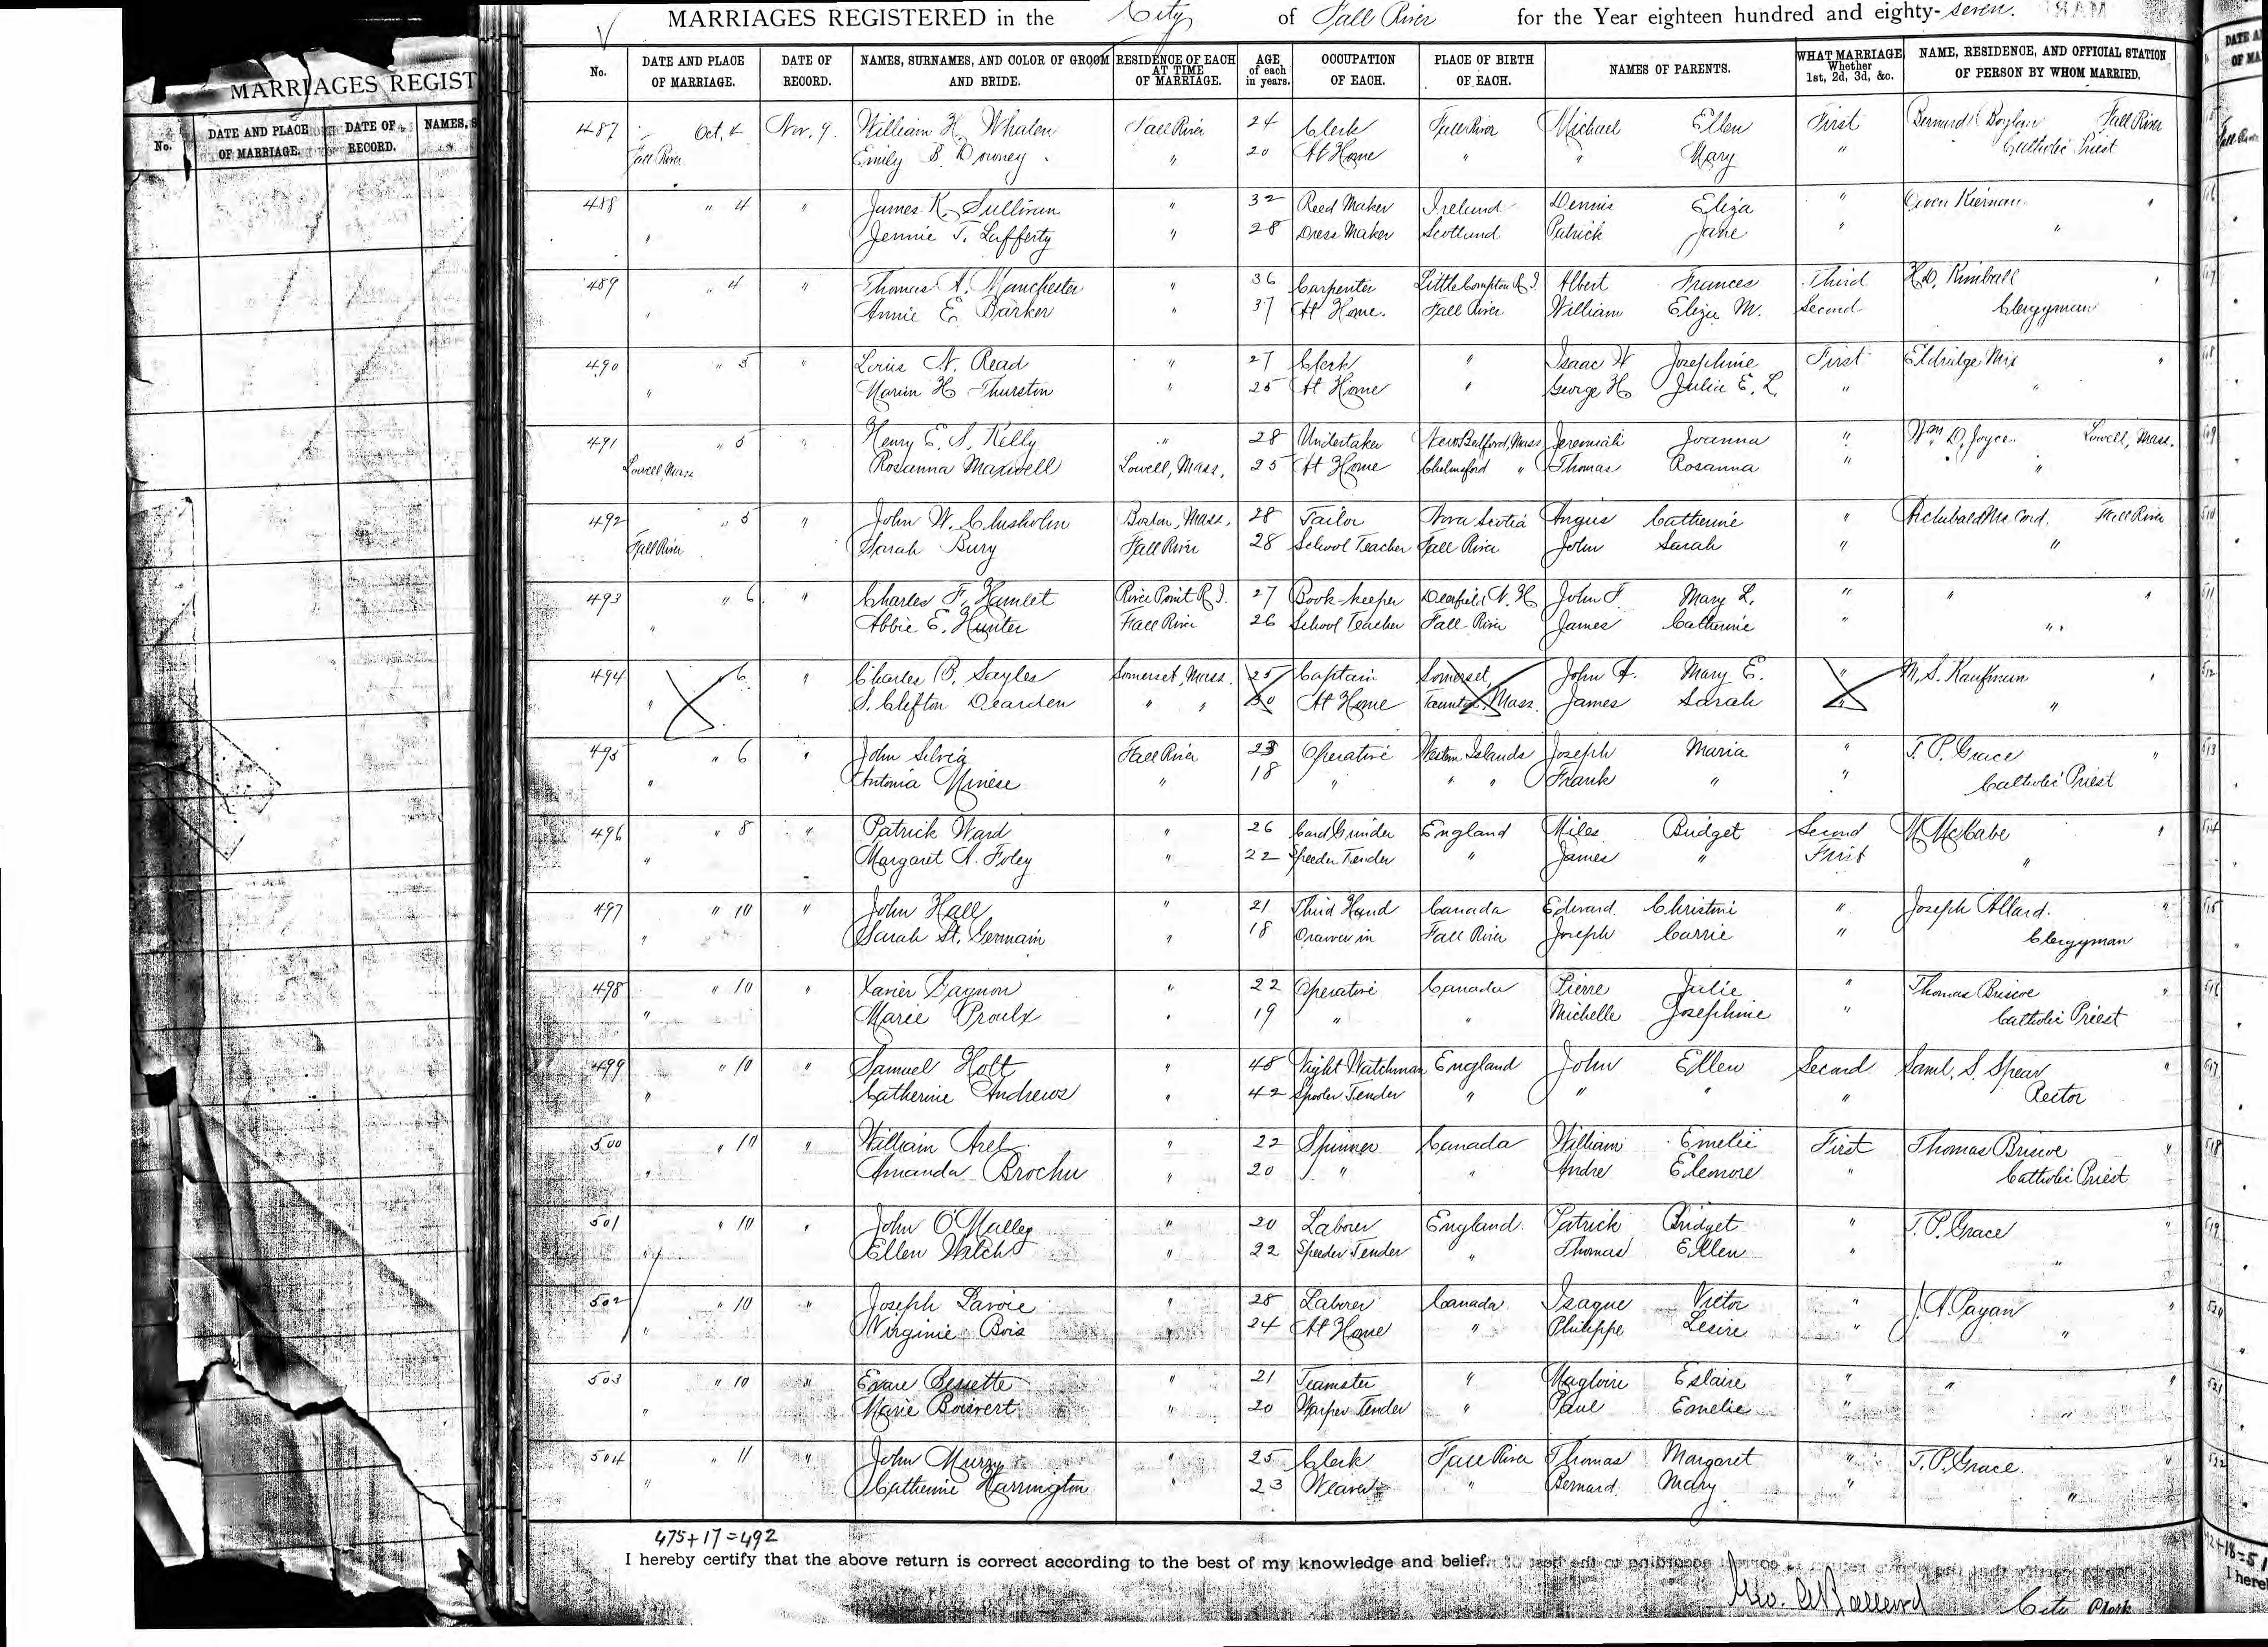 MARRIAGES REGISTERED in the City of Fall River for the Year eighteen hundred and eighty-seven.
MARRIAGES REGIST
No. DATE AND PLACE OF MARRIAGE. DATE OF RECORD. NAMES, S
No. DATE AND PLACE OF MARRIAGE. DATE OF RECORD. NAMES, SURNAMES, AND COLOR OF GROOM AND BRIDE. RESIDENCE OF EACH AT TIME OF MARRIAGE. AGE of each in years. OCCUPATION OF EACH. PLACE OF BIRTH OF EACH. NAMES OF PARENTS. WHAT MARRIAGE Whether 1st, 2d, 3d, &c. NAME, RESIDENCE, AND OFFICIAL STATION OF PERSON BY WHOM MARRIED.
487 Oct. 4 Nov. 9. William H. Whalen Fall River 24 Clerk Fall River Michael Ellen First Bernard Boylan Fall River
Fall River Emily B. Downey " 20 At Home " " Mary " Catholic Priest
488 " 4 " James K. Sullivan " 32 Reed Maker Ireland Dennis Eliza " Owen Kiernan "
" Jennie T. Lafferty " 28 Dress Maker Scotland Patrick Jane " "
489 " 4 " Thomas A. Manchester " 36 Carpenter Little Compton R.I. Albert Frances Third H.D. Kimball "
" Annie E. Barker " 37 At Home. Fall River William Eliza M. Second Clergyman
490 " 5 " Louis N. Read " 27 Clerk " Isaac W Josephine First Eldridge Mix "
" Marion H Thurston " 25 At Home " George H Julia E. L. " "
491 " 5 " Henry E. S. Kelly " 28 Undertaker New Bedford, Mass Jeremiah Joanna " Wm D. Joyce Lowell, Mass.
Lowell, Mass Rosanna Maxwell Lowell, Mass, 25 At Home Chelmsford " Thomas Rosanna " "
492 " 5 " John W. Chisholm Boston, Mass. 28 Tailor Nova Scotia Angus Catherine " Archibald McCord. Fall River
Fall River Sarah Bury Fall River 28 School Teacher Fall River John Sarah " "
493 " 6 " Charles F. Hamlet River Point R.I. 27 Book-keeper Deerfield N.H John F. Mary L. " " "
" Abbie E. Hunter Fall River 26 School Teacher Fall River James Catherine " "
494 " 6 " Charles B. Sayles Somerset, Mass. 25 Captain Somerset, John F. Mary E. " M. S. Kaufman "
" S. Clifton Dearden " " 20 At Home Taunton, Mass. James Sarah " "
495 " 6 " John Silvia Fall River 23 Operative Western Islands Joseph Maria " T. P. Grace "
" Antonia Minese " 18 " " " Frank " " Catholic Priest
496 " 8 " Patrick Ward " 26 Card Grinder England Miles Bridget Second M. McCabe "
" Margaret A. Foley " 22 Speeder Tender " James " First "
497 " 10 " John Hall " 21 Third Hand Canada Edward Christine " Joseph Allard. "
" Sarah St. Germain " 18 Drawer in Fall River Joseph Carrie " Clergyman
498 " 10 " Xavier Gagnon " 22 Operative Canada Pierre Julie " Thomas Briscoe "
" Marie Proulx " 19 " " Michelle Josephine " Catholic Priest
499 " 10 " Samuel Holt " 48 Night Watchman England John Ellen Second Saml. S. Spear "
" Catherine Andrews " 42 Spooler Tender " " " " Rector
500 " 10 " William Arel " 22 Spinner Canada William Emelie First Thomas Briscoe "
" Amanda Brochu " 20 " " Andre Eleonore " Catholic Priest
501 " 10 " John O'Malley " 20 Laborer England Patrick Bridget " T. P. Grace "
" Ellen Walch " 22 Speeder Tender " Thomas Ellen " "
502 " 10 " Joseph Lavoie " 28 Laborer Canada Isaque Victor " J. A. Payan "
" Virginie Bois " 24 At Home " Philippe Lesire " "
503 " 10 " Bessette " 21 Teamster " Magloire Eslaire " " "
" Marie Boisvert " 20 Warper Tender " Paul Emelie " "
504 " 11 " John Murry " 25 Clerk Fall River Thomas Margaret " T. P. Grace. "
" Catherine Harrington " 23 Weaver " Bernard Mary " "
475+17=492
I hereby certify that the above return is correct according to the best of my knowledge and belief.
Geo. A Ballard City Clerk